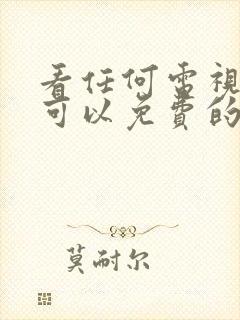 看任何電視
可以免費的
莫耐尔